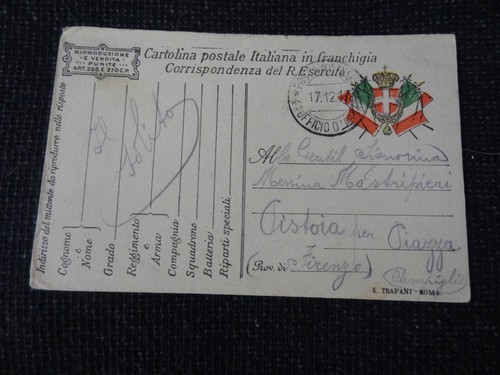 RIPRODUZIONE
E VENDITA
PUNITE
ART. 268 E 270 C.P.
Cartolina postale Italiana in franchigia
Corrispondenza del R. Esercito
17.12
UFFICIO
Indirizzo del mittente da riprodurre nelle risposte
Cognome
e
Nome
Grado
Reggimento
e
Arma
Compagnia
Squadrone
Batteria
Riparti speciali
Il
solito
Alla Gentil Signorina
Messina Mastripieri
Pistoia per Piazza
(Prov. di Firenze)
Campiglio
E. TRAPANI - ROMA